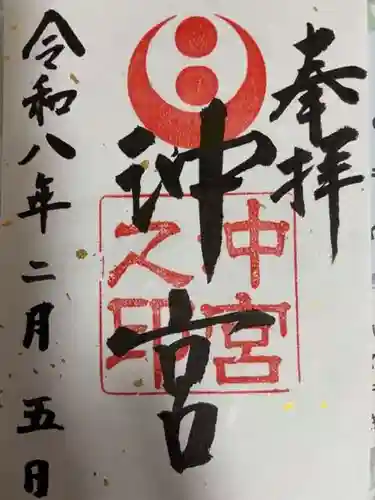 奉拝
沖宮
沖宮
之印
令和八年二月五日